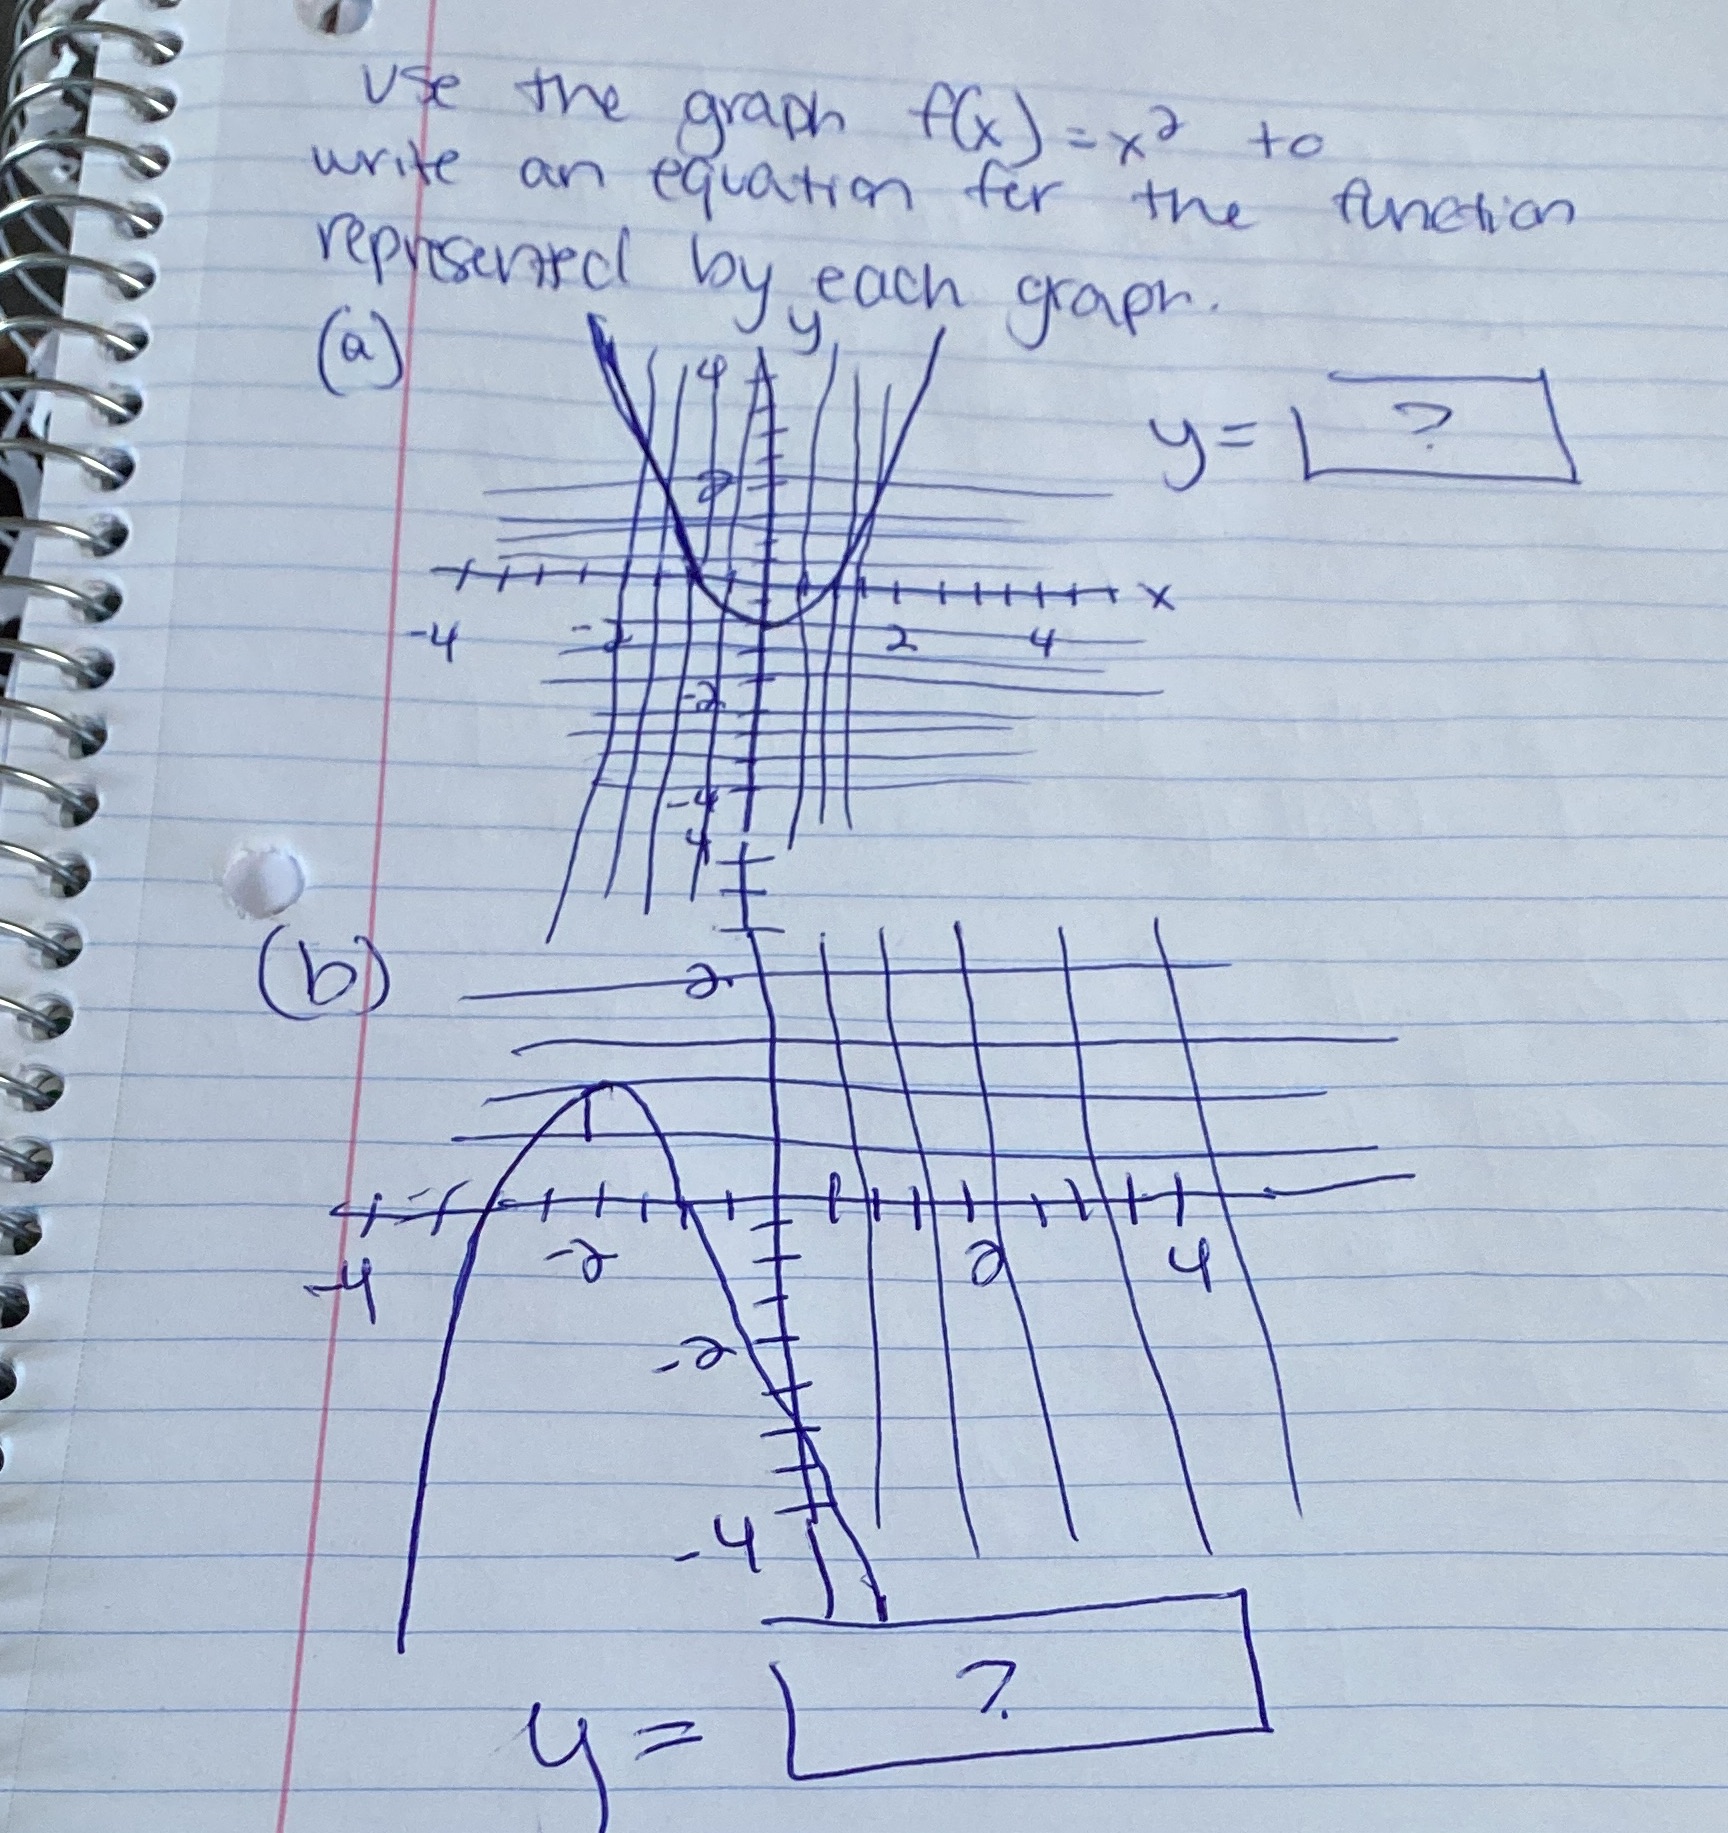 Use the graph f(x) = x² to
write an equation for the function
represented by each graph.
(a)
y
4
y = ?
2
x
-4 -2 2 4
-2
-4
4
(b)
2
-4 -2 2 4
-2
-4
y = ?